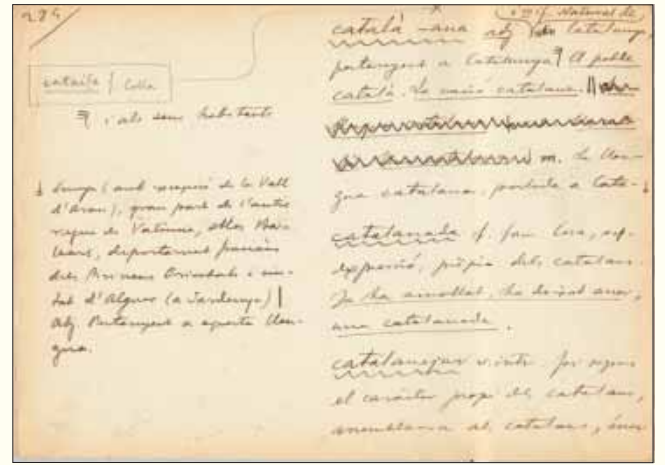 284
cataifa f. Colla
i als seus habitants
lunya (amb excepció de la Vall
d'Aran), gran part de l'antic
regne de València, illes Ba-
lears, departament francès
dels Pirineus Orientals i ciu-
tat d'Alguer (a Sardenya) |
Adj. Pertanyent a aquesta llen-
gua.
m. i f. Natural de
català -ana adj. Catalunya,
pertanyent a Catalunya. El poble
català. La nació catalana. ||
m. La llen-
gua catalana, parlada a Cata-
catalanada f. fam. Cosa, esp.
expressió, pròpia dels catalans.
Ja ha amollat, ha deixat anar,
una catalanada.
catalanejar v. intr.
el caràcter propi dels catalans,
semblança als catalans,